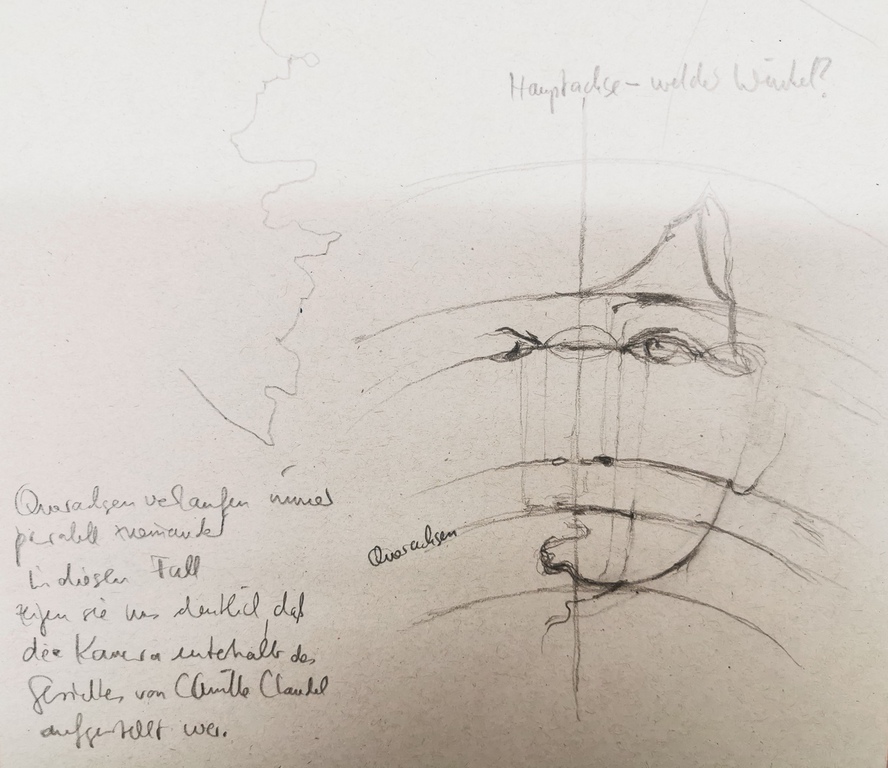 Hauptachse – welcher Winkel?
Querachsen verlaufen immer
parallel zueinander
In diesem Fall
zeigen sie uns deutlich, daß
die Kamera unterhalb des
Gesichtes von Camille Claudel
aufgestellt war.
Querachsen